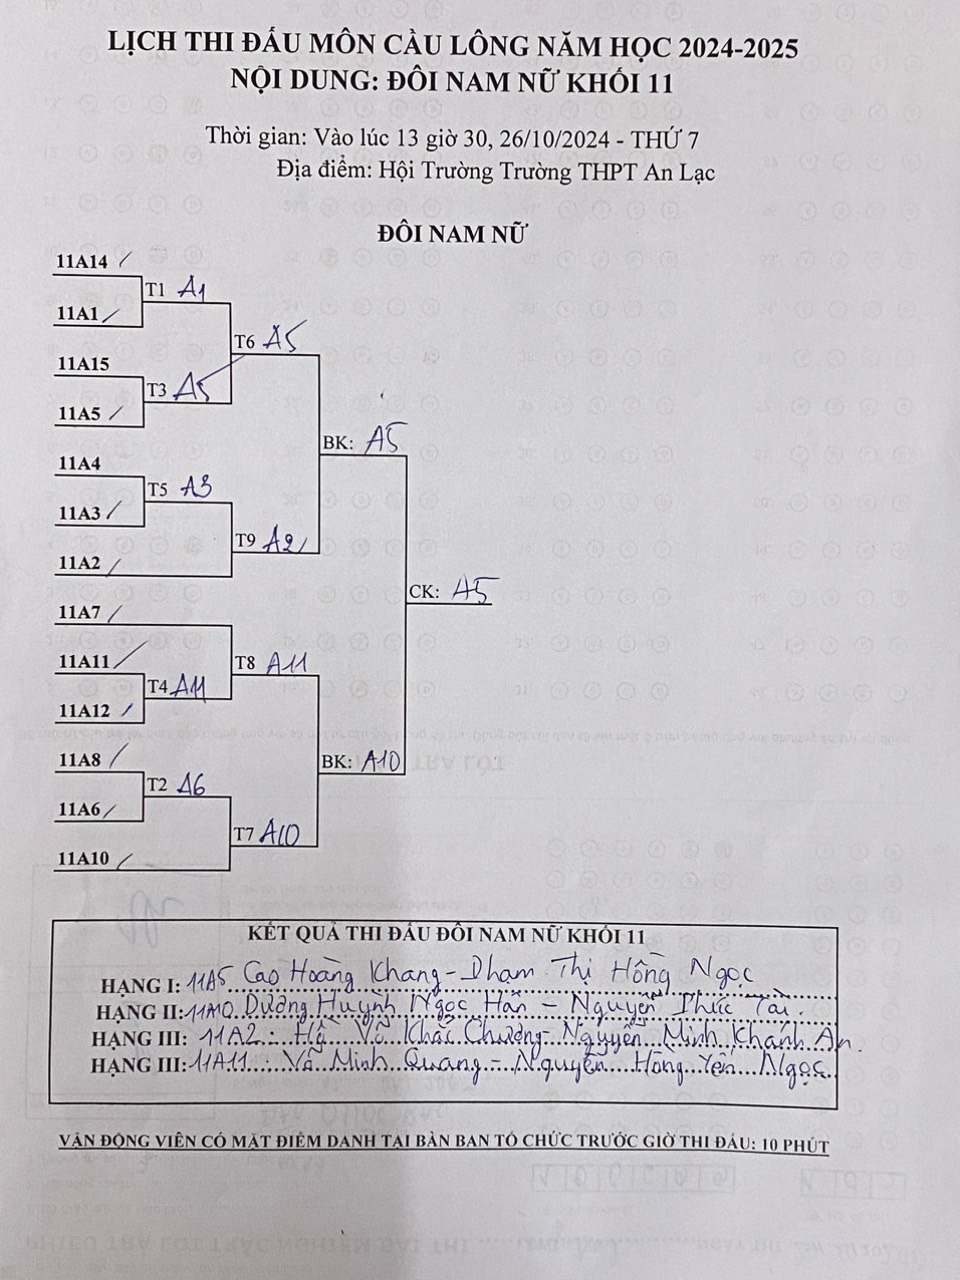 LỊCH THI ĐẤU MÔN CẦU LÔNG NĂM HỌC 2024-2025
NỘI DUNG: ĐÔI NAM NỮ KHỐI 11
Thời gian: Vào lúc 13 giờ 30, 26/10/2024 - THỨ 7
Địa điểm: Hội Trường Trường THPT An Lạc
ĐÔI NAM NỮ
11A14
T1 A1
11A1
T6 A5
11A15
T3 A5
11A5
BK: A5
11A4
T5 A3
11A3
T9 A2
11A2
CK: A5
11A7
11A11
T8 A11
T4 A11
11A12
11A8
BK: A10
T2 A6
11A6
T7 A10
11A10
KẾT QUẢ THI ĐẤU ĐÔI NAM NỮ KHỐI 11
HẠNG I: 11A5 Cao Hoàng Khang - Phạm Thị Hồng Ngọc
HẠNG II: 11A10 Dương Huỳnh Ngọc Hân - Nguyễn Phúc Tài.
HẠNG III: 11A2: Hồ Võ Khắc Chương - Nguyễn Minh Khánh An.
HẠNG III: 11A11: Võ Minh Quang - Nguyễn Hồng Yến Ngọc
VẬN ĐỘNG VIÊN CÓ MẶT ĐIỂM DANH TẠI BÀN BAN TỔ CHỨC TRƯỚC GIỜ THI ĐẤU: 10 PHÚT